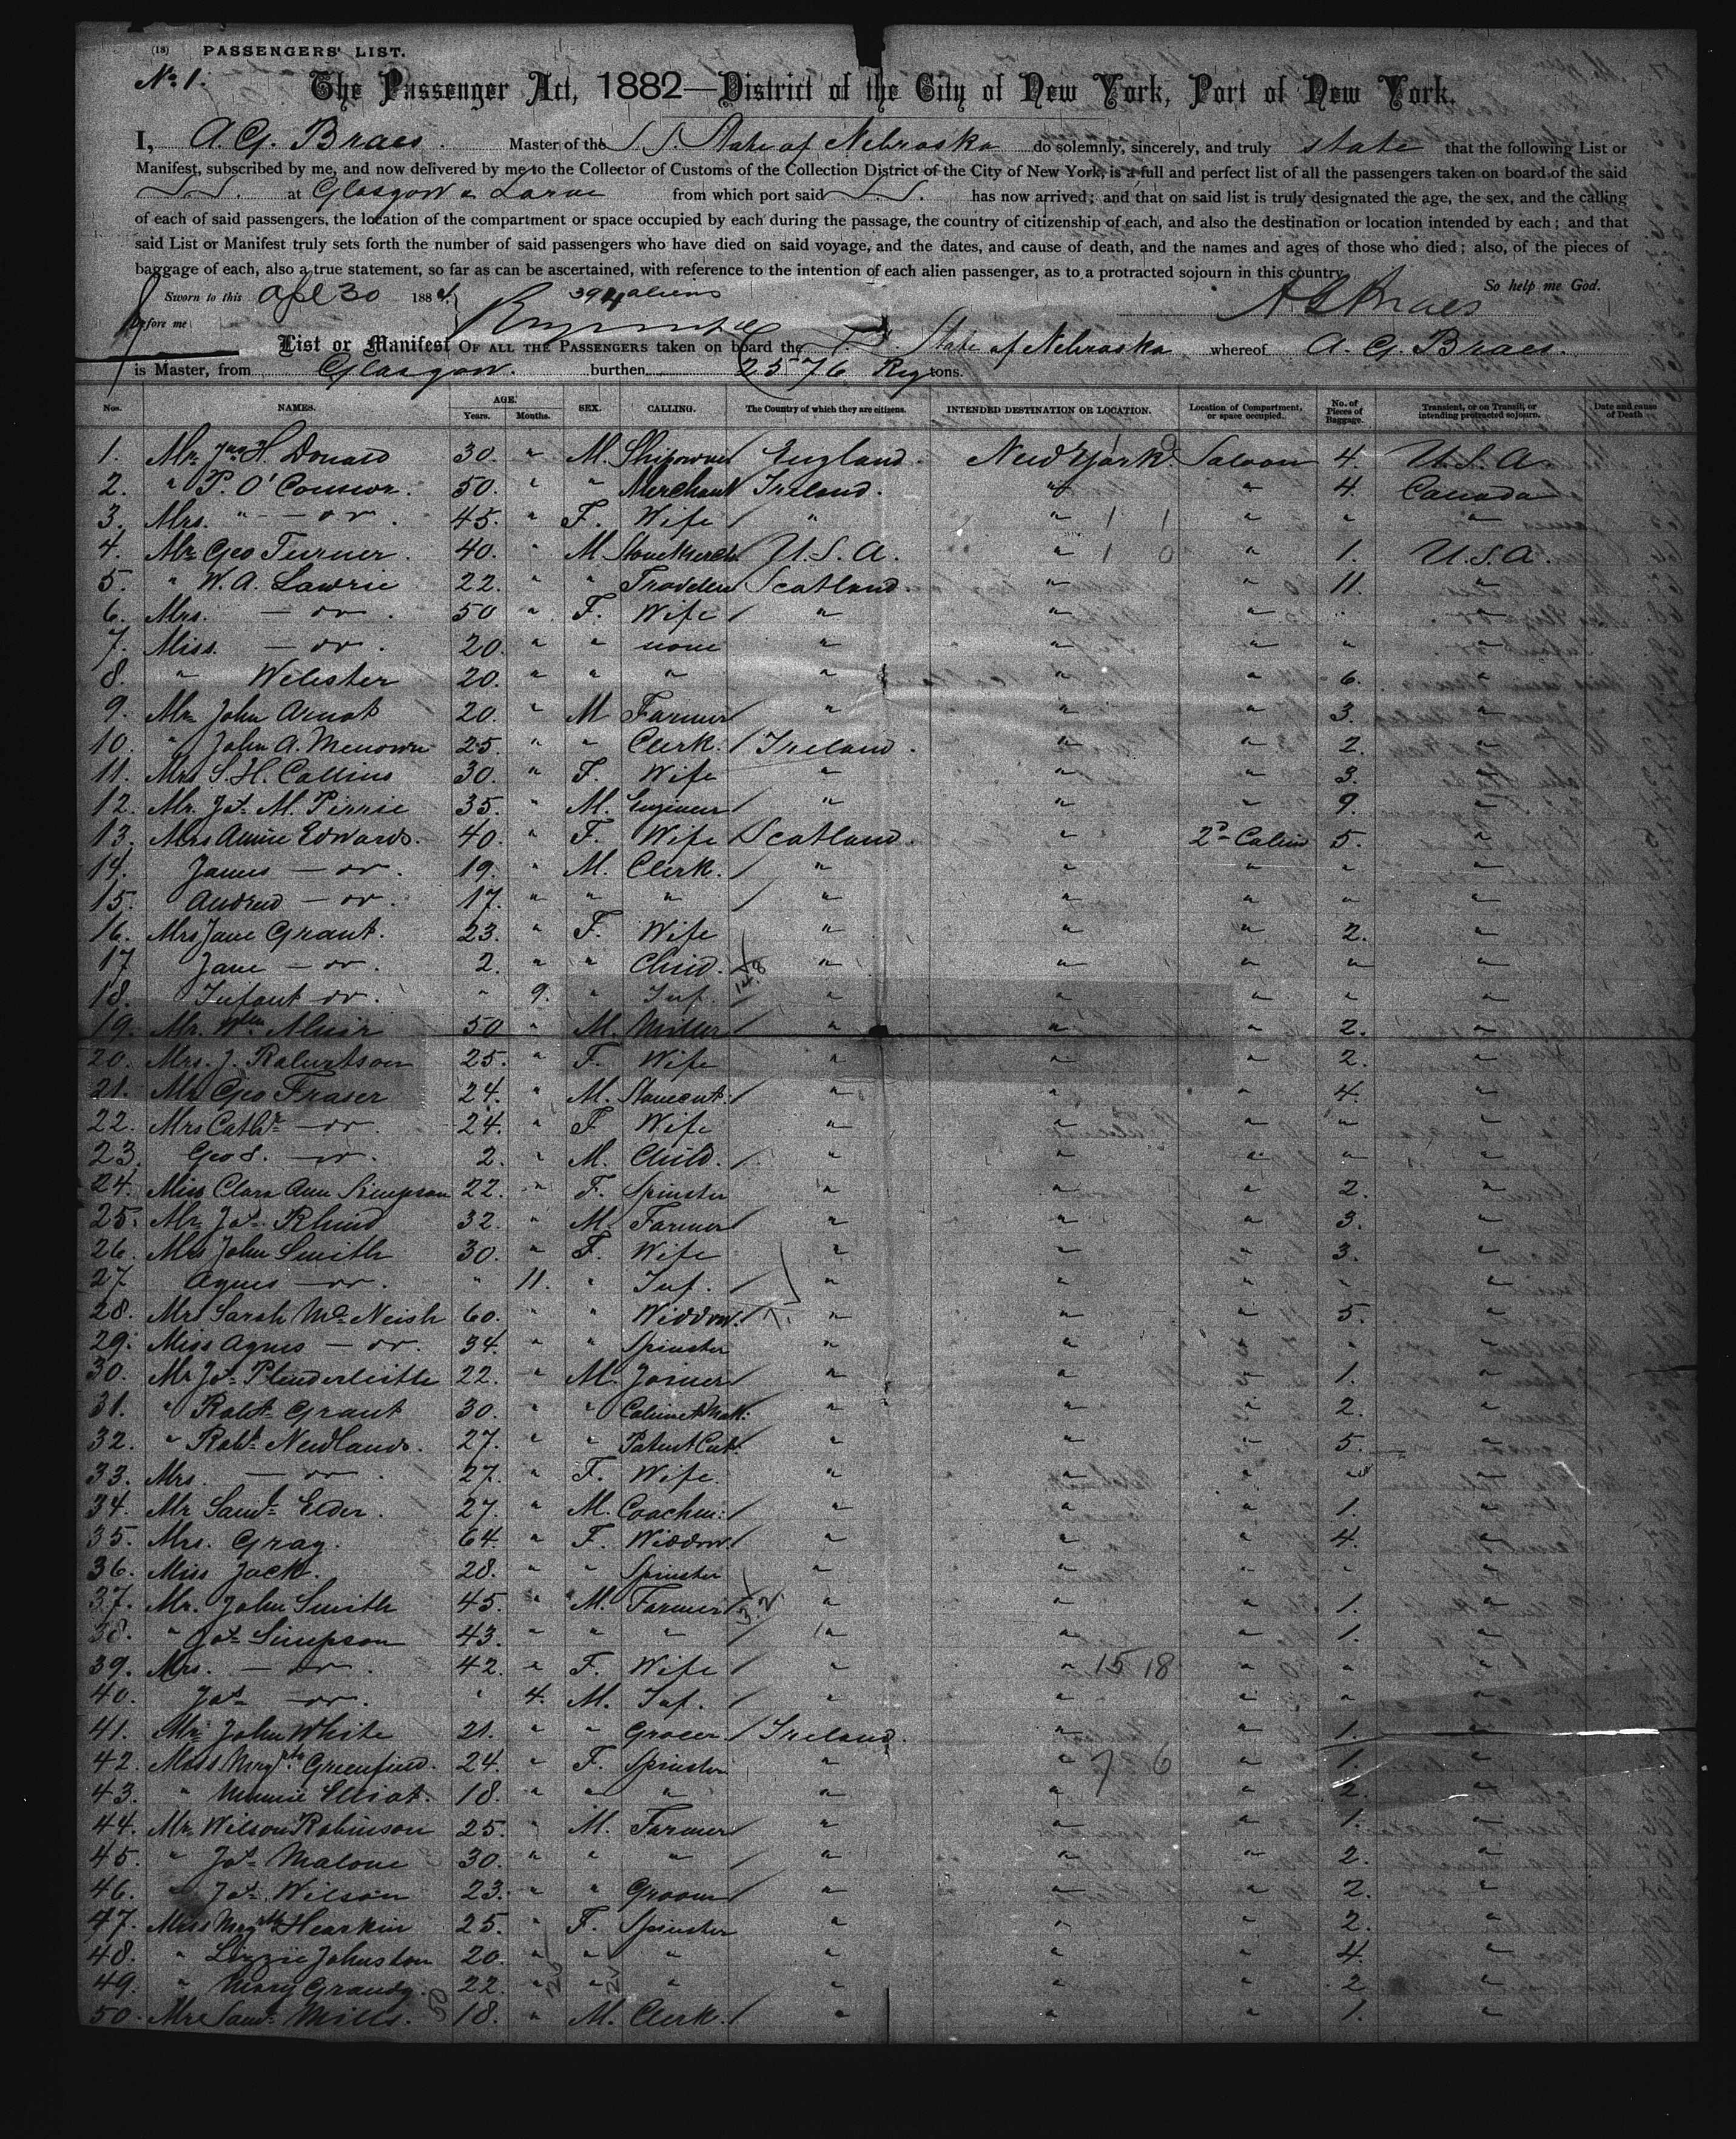 (18) PASSENGERS' LIST.
No 1.
The Passenger Act, 1882—District of the City of New York, Port of New York.
I, A. G. Braes. Master of the S.S. State of Nebraska do solemnly, sincerely, and truly state that the following List or
Manifest, subscribed by me, and now delivered by me to the Collector of Customs of the Collection District of the City of New York, is a full and perfect list of all the passengers taken on board of the said
S.S. at Glasgow & Larne from which port said S.S. has now arrived; and that on said list is truly designated the age, the sex, and the calling
of each of said passengers, the location of the compartment or space occupied by each during the passage, the country of citizenship of each, and also the destination or location intended by each; and that
said List or Manifest truly sets forth the number of said passengers who have died on said voyage, and the dates, and cause of death, and the names and ages of those who died; also, of the pieces of
baggage of each, also a true statement, so far as can be ascertained, with reference to the intention of each alien passenger, as to a protracted sojourn in this country
So help me God.
Sworn to this Apl 30 1884. 394 aliens A G Braes
before me
List or Manifest OF ALL THE PASSENGERS taken on board the S.S. State of Nebraska whereof A. G. Braes.
is Master, from Glasgow. burthen 2576 Reg tons.
Nos. NAMES. AGE. Years. Months. SEX. CALLING. The Country of which they are citizens. INTENDED DESTINATION OR LOCATION. Location of Compartment, or space occupied. No. of Pieces of Baggage. Transient, or on Transit, or intending protracted sojourn. Date and cause of Death
1. Mr. Jno H. Donald 30. " M. Shipowner England. New York. Saloon 4. U.S.A.
2. " P. O'Connor. 50. " " Merchant Ireland. " " 4. Canada
3. Mrs. " — do. 45. " F. Wife " " 1 1 " " "
4. Mr Geo Turner. 40. " M. Stone Merch U.S.A. " 1 0 " 1. U.S.A.
5. " W. A. Lawrie 22. " " Traveller Scotland. " " 11. "
6. Mrs. — do. 50 " F. Wife " " " " "
7. Miss. — do. 20. " " none " " " " "
8. " Webster 20. " " " " " " 6. "
9. Mr John Arnot 20. " M Farmer " " " 3. "
10. " John A. Menown 25. " " Clerk. Ireland. " " 2. "
11. Mrs S. H. Collins 30. " F. Wife " " " 3. "
12. Mr. Jas. M. Pirrie 35. " M. Engineer " " " 9. "
13. Mrs Annie Edwards. 40. " F. Wife Scotland. " 2d Cabin 5. "
14. James — do. 19. " M. Clerk. " " " " "
15. Andrew — do. 17. " " " " " " " "
16. Mrs Jane Grant. 23. " F. Wife " " " 2. "
17 Jane — do. 2. " " Child. " " " " "
18. Infant do. " 9. " Inf. " " " " "
19. Mr. Wm Muir 50 " M. Miller " " " 2. "
20. Mrs. J. Robertson 25. " F. Wife " " " 2. "
21. Mr Geo Fraser 24. " M. Stonecut. " " " 4. "
22. Mrs Cathe — do. 24. " F. Wife " " " " "
23. Geo S. — do. 2. " M. Child. " " " " "
24. Miss Clara Ann Simpson 22. " F. Spinster " " " 2. "
25. Mr Jas. Rhind 32. " M. Farmer " " " 3. "
26. Mrs John Smith 30. " F. Wife " " " 3. "
27 Agnes — do. " 11. " Inf. " " " " "
28. Mrs Sarah McNeish 60. " " Widdow. " " " 5. "
29. Miss Agnes — do. 34. " " Spinster " " " " "
30. Mr Jas Plenderleith 22. " M. Joiner " " " 1. "
31. " Robt. Grant 30. " " Cabinet Mak: " " " 2. "
32. " Robt. Newlands. 27. " " Patent Cut. " " " 5. "
33. Mrs. — do. 27. " F. Wife. " " " " "
34. Mr Saml. Elder. 27. " M. Coachm: " " " 1. "
35. Mrs. Gray. 64. " F. Widdow. " " " 4. "
36. Miss Jack. 28. " " Spinster " " " " "
37. Mr. John Smith 45. " M. Farmer " " " 1. "
38. " Jas Simpson 43. " " " " " " 1. "
39. Mrs. — do. 42. " F. Wife " " 15 18 " " "
40. Jas — do. " 4. M. Inf. " " " " "
41. Mr John White 21. " " Grocer Ireland. " " 1. "
42. Miss Margt. Greenfield. 24. " F. Spinster " " 7 6 " 1. "
43. " Minnie Elliot. 18. " " " " " " 2. "
44. Mr Wilson Robinson 25. " M. Farmer " " " 1. "
45. " Jas Malone 30. " " " " " " 2. "
46. " Jas. Wilson 23. " " Groom " " " 2. "
47. Miss Margt Hearkin 25. " F. Spinster " " " 2. "
48. " Lizzie Johnston 20. " " " " " " 4. "
49. " Mary Grandy. 22. " " " " " " 2 "
50. Mr Saml. Mills. 18. " M. Clerk. " " " 1. "